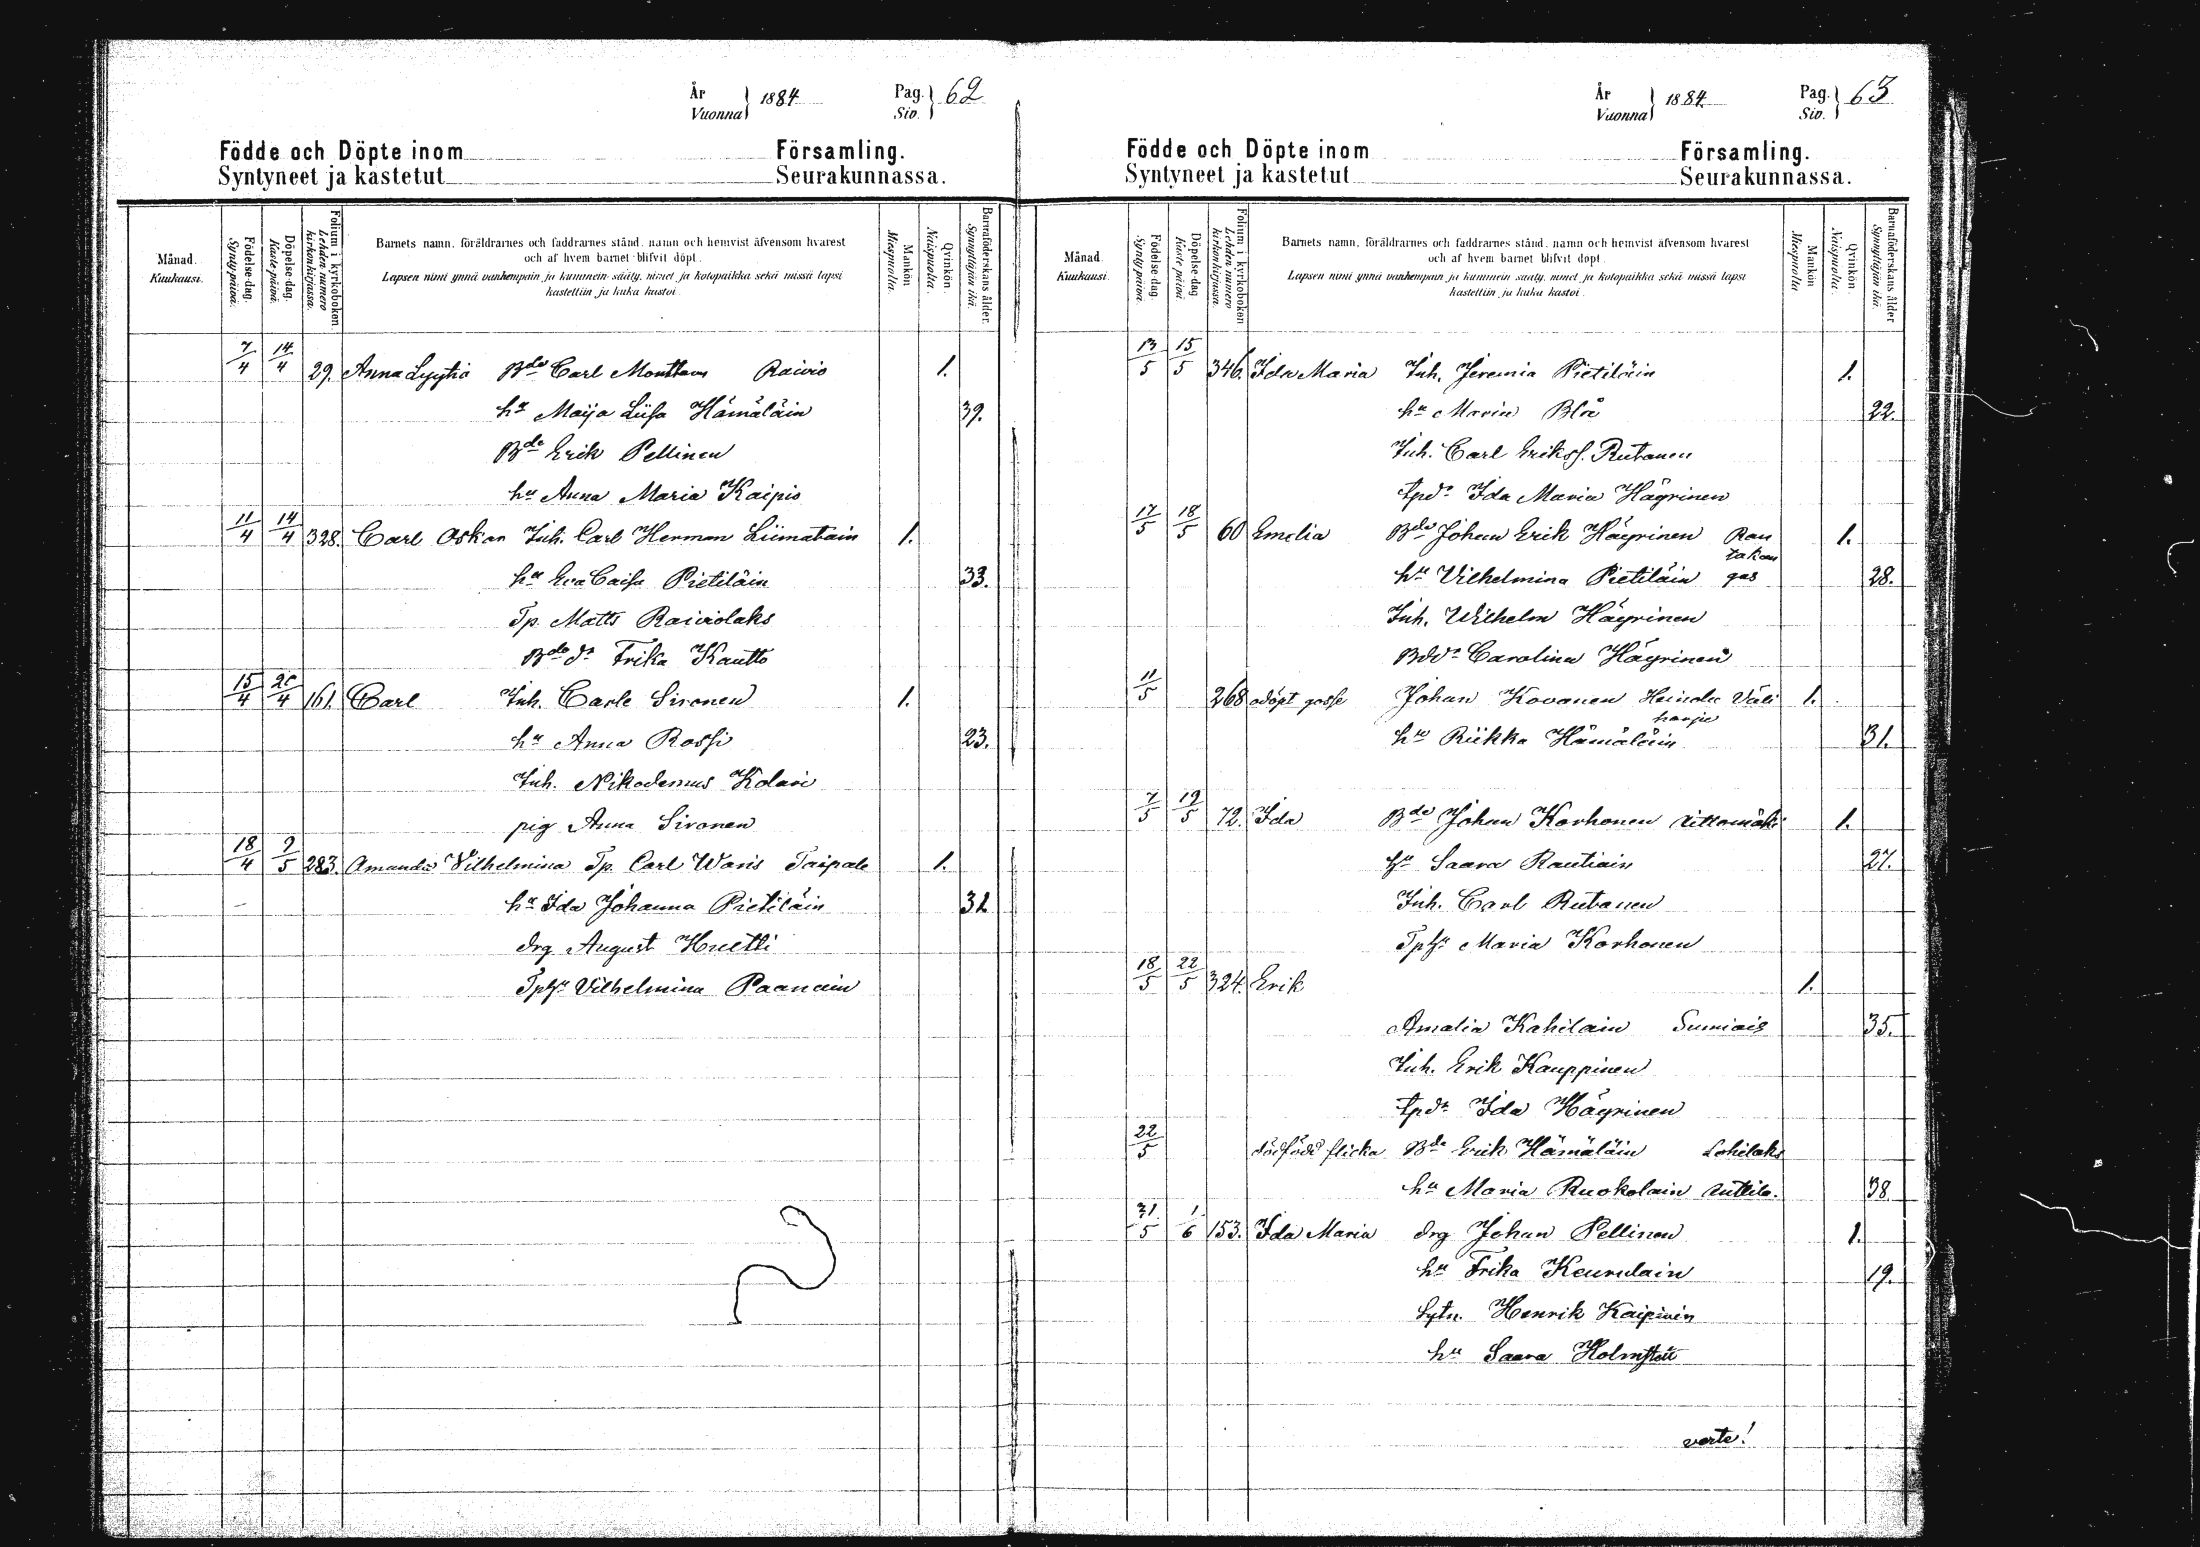 År
Vuonna } 1884
Pag.
Siv. } 62
Födde och Döpte inom Församling.
Syntyneet ja kastetut Seurakunnassa.
Månad.
Kuukausi.
Födelse-dag.
Synty-päivä.
Döpelse-dag.
Kaste-päivä.
Folium i kyrkoboken
Lehden numero kirkonkirjassa.
Barnets namn, föräldrarnes och faddrarnes stånd, namn och hemvist äfvensom hvarest
och af hvem barnet blifvit döpt.
Lapsen nimi ynnä vanhempain ja kummein sääty, nimet ja kotopaikka sekä missä lapsi
kastettiin ja kuka kastoi.
Mankön
Miespuolta.
Qvinkön.
Naispuolta.
Barnaföderskans ålder.
Synnyttäjän ikä.
7/4 14/4 29. Anna Lyytia Bde Carl Raivio 1.
hu Maija Liisa Hämäläin 39.
Bde Erik Pellinen
hu Anna Maria Kaipio
11/4 14/4 328. Carl Oskar Inh. Carl Herman Liimatain 1.
hu Eva Caisa Pietiläin 33.
Tp. Matts Raiviolaks
Bdedr Frika Kautto
15/4 20/4 161. Carl Inh. Carle Sironen 1.
hu Anna Rossi 23.
Inh. Nikodemus Kolari
pig Anna Sironen
18/4 2/5 283. Amanda Vilhelmina Tp. Carl Waris Taipale 1.
hu Ida Johanna Pietiläin 32
drg August Huetti
Tphu Vilhelmina Paanain
År
Vuonna } 1884.
Pag.
Siv. } 63
Födde och Döpte inom Församling.
Syntyneet ja kastetut Seurakunnassa.
Månad
Kuukausi.
Födelse-dag
Synty-päivä.
Döpelse-dag
Kaste-päivä.
Folium i kyrkoboken
Lehden numero kirkonkirjassa.
Barnets namn, föräldrarnes och faddrarnes stånd, namn och hemvist äfvensom hvarest
och af hvem barnet blifvit döpt.
Lapsen nimi ynnä vanhempain ja kummein sääty, nimet ja kotopaikka sekä missä lapsi
kastettiin ja kuka kastoi.
Mankön
Miespuolta
Qvinkön.
Naispuolta.
Barnaföderskans ålder
Synnyttäjän ikä.
13/5 15/5 346. Ida Maria Inh. Jeremia Pietiläin 1.
hu Maria Blå 22.
Inh. Carl Erikss. Rutanen
tpdr Ida Maria Häyrinen
17/5 18/5 60 Emelia Bde Johan Erik Häyrinen Rau 1.
takan
hu Vilhelmina Pietiläin gas 28.
Inh. Wilhelm Häyrinen
Bddr Carolina Häyrinen
11/5 268 odöpt gosse Johan Kovanen Heinola Väli 1.
harju
hu Riikka Hämäläin 31.
7/5 19/5 72. Ida Bde Johan Korhonen Rittomäki 1.
hu Saara Rautiain 27.
Inh. Carl Rutanen
Tphu Maria Korhonen
18/5 22/5 324. Erik 1.
Amalia Kahilain Sumiais 35.
Inh. Erik Kauppinen
tpdr Ida Häyrinen
22/5 dödfödd flicka Bde Erik Hämäläin Lohilaks
hu Maria Ruokolain Anttila. 38.
31/5 1/6 153. Ida Maria drg Johan Pellinen 1.
hu Frika Keurulain 19.
Sytn. Henrik Kaipinen
hu Saara Holmstett
verte!